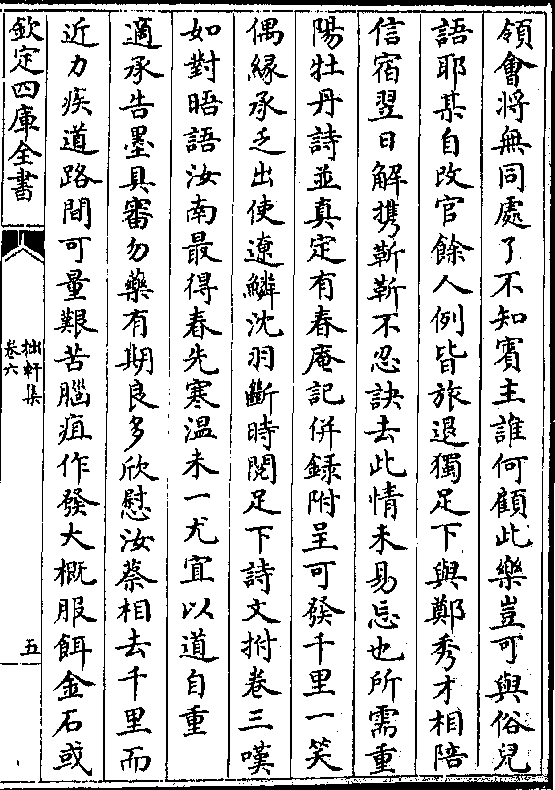 領會将無同處了不知賓主誰何顧此樂豈可與俗兒
語耶某自改官餘人例皆旅退獨足下與鄭秀才相陪
信宿翌日解攜靳靳不忍訣去此情未易忘也所需重
陽牡丹詩並真定有春庵記併録附呈可發千里一笑
偶縁承乏出使遼鱗沈羽斷時閲足下詩文拊卷三嘆
如對晤語汝南最得春先寒温未一尤宜以道自重
適承告墨具審勿藥有期良多欣慰汝蔡相去千里而
近力疾道路間可量艱苦腦疽作發大概服餌金石或
欽定四庫全書
拙軒集
卷六
五